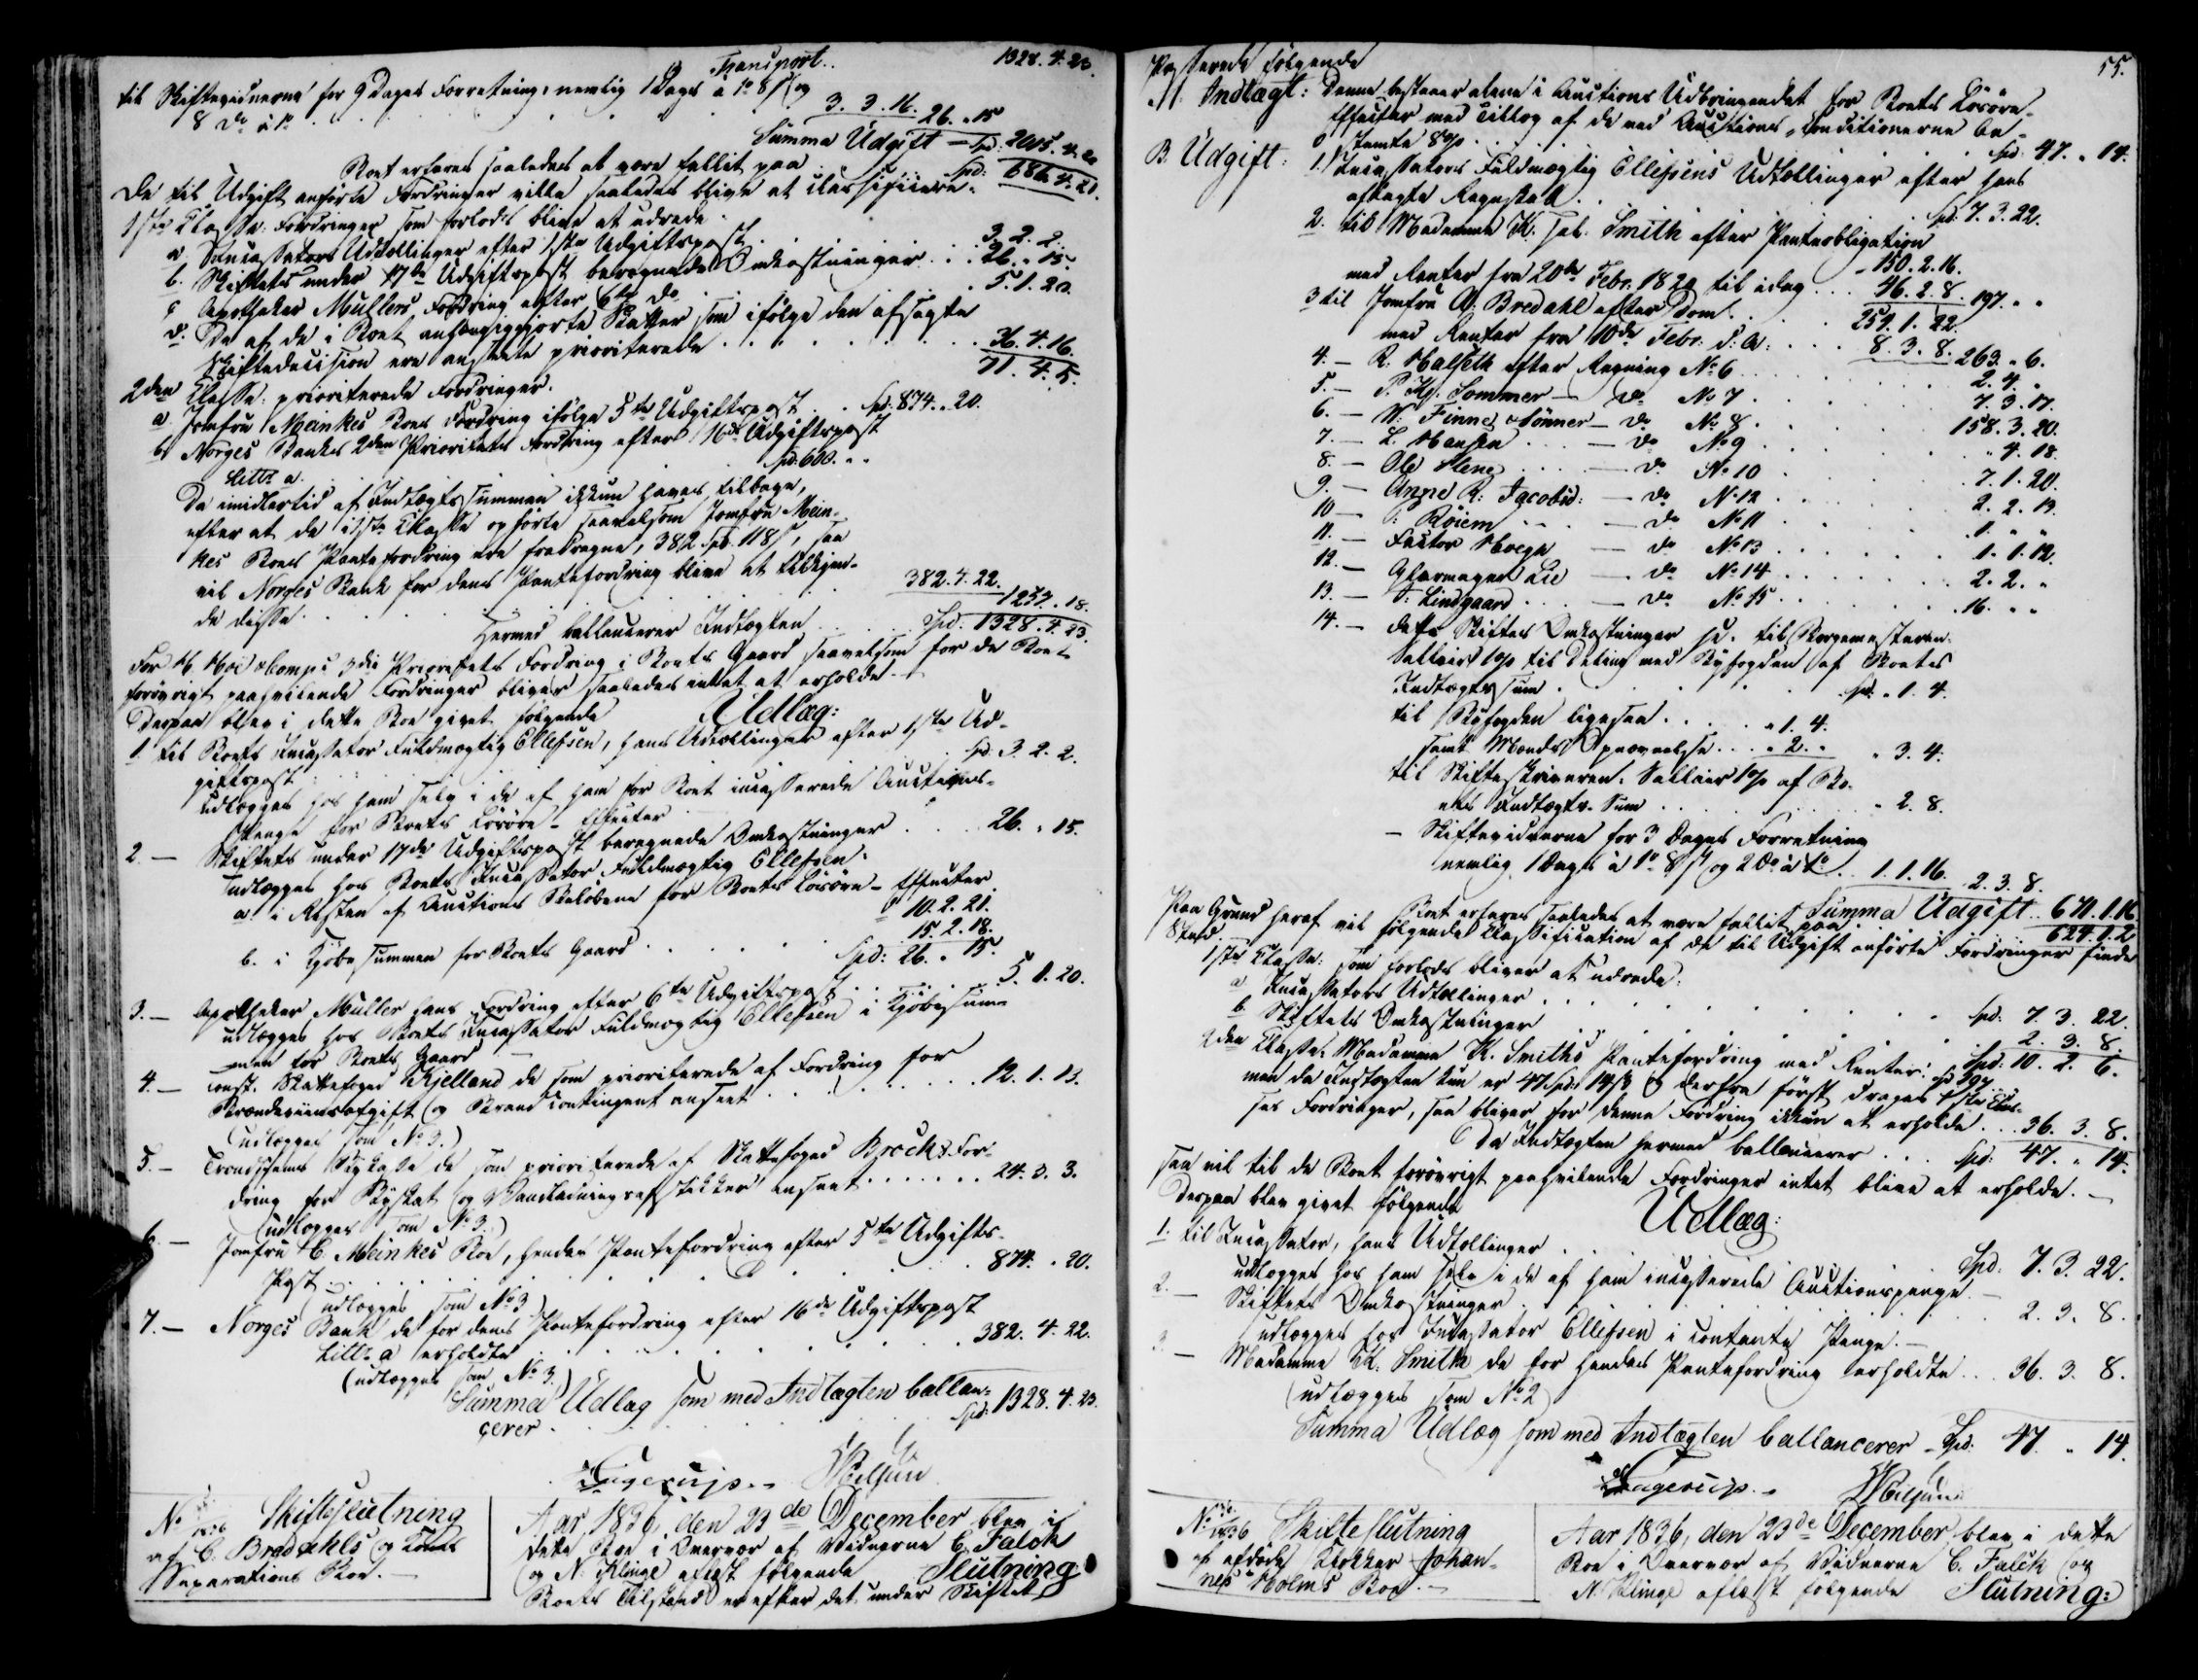 Transport.. 1328.4.23.
til Skiftevidnerne for 9 Dages Forretning, nemlig 1 Dags à 1º 8 s og
8 dº à 1º . . . 3.3.16. 26. „ 15
Summa Udgift — Spd. 2015.4.20
Boet erfares saaledes at være fallit paa . . Spd: 686.4.21.
De til Udgift anførte Fordringer ville saaledes blive at classificere.
1ste Classe: Fordringer som forlods blive at udrede.
a. Incassators Udtællinger efter 1ste Udgiftspost . 3.2.2.
b. Skiftets under 17de Udgiftspost beregnede Omkostninger . . . 26. „ 15.
c Apotheker Müllers Fordring efter 6te dº . . . 5.1.20.
d. De af de i Boet anhængiggjorte Skatter som ifølge den afsagte
Skiftedecision ere ansete prioriterede . . . 36.4.16.
71.4.5.
2den Classe: prioriterede Fordringer.
a. Jomfru Meinkes Boes Fordring ifølge 5te Udgiftspost . . Spd. 874. „ 20.
b Norges Banks 2den Prioritets Fordring efter 16de Udgiftspost
Littr a. . . . Spd. 600. „ „
Da imidlertid af Indtægtssummen ikkun haves tilbage,
efter at de i 1ste Classe opførte saavelsom Jomfru Mein-
kes Boes Pantefordring ere fradragne, 382 Spd. 118 s, saa
vil Norges Bank for dens Pantefordring blive at tilkjen-
de disse . . . 382.4.22.
1257. „ 18.
Hermed ballancerer Indtægten . . . Spd: 1328.4.23.
For H. Hoë &Compˢ 3die Prioritets Fordring i Boets Gaard saavelsom for de Boet
forøvrigt paahvilende Fordringer bliver saaledes intet at erholde. —
Derpaa blev i dette Boe givet følgende Udlæg:
1. til Boets Incassator Fuldmægtig Ellefsen, hans Udtællinger efter 1ste Ud-
giftspost . . . Spd. 3.2.2.
udlægges hos ham selv i de af ham for Boet incasserede Auctions-
Penge for Boets Løsøre-Effecter
2 — Skiftets under 17de Udgiftspost beregnede Omkostninger . . . 26. „ 15.
Indlægges hos Boets Incassator Fuldmægtig Ellefsen.
a i Resten af Auctions Beløbene for Boets Løsøre-Effecter
10.2.21.
b. i Kjøbesummen for Boets Gaard . . . 15.2.18.
Spd: 26. „ 15.
3. — Apotheker Müller hans Fordring efter 6te Udgiftspost . . . 5.1.20.
udlægges hos Boets Incassator Fuldmægtig Ellefsen i Kjøbesum-
men for Boets Gaard —
4. — const. Skattefoged Kjelland de som prioriterede af Fordring for
Brændeviinsafgift og Brandcontingent anseet . . . 12.1.13.
(udlægges som Nº 3.)
5. — Trondhjems Bykasse de som prioriterede af Skattefoged Brocks For-
dring for Byskat og Vandledningsafstikker anseet . . . 24.3.3.
(udlægges som Nº 3.)
6. — Jomfru C. Meinkes Boe, hendes Pantefordring efter 5te Udgifts-
Post . . . 874. „ 20.
(udlægges som Nº 3)
7. — Norges Bank de for dens Pantefordring efter 16de Udgiftspost
Littr a erholdte . . . 382.4.22.
(udlægges som Nº 3.)
Summa Udlag som med Indtægten ballan-
cerer . . . Spd: 1328.4.23.
Lagerup. -
Nº 1836 Skifteslutning
af C. Bredahls og
Separations Boe. —
Aar 1836, den 23de December blev i
dette Boe i Overvær af Vidnerne C. Falck
og N. Klinge aflæst følgende Slutning
Boets Tilstand er efter det under Skiftet
55.
Passerede følgende
A. Indtægt: Denne bestaaer alene i Auctions Udbringendet for Boets Løsøre-
Effecter med Tillæg af de ved Auctions-Conditionerne be-
stemte 8 % . . . Spd. 47. „ 14.
B. Udgift: 1. Incassators Fuldmægtig Ellefsens Udtællinger efter hans
aflagte Regnskab . . Spd. 7.3.22.
2. til Madamme K. sal. Smith efter Panteobligation
- 150.2.16.
med Renter fra 20de Febr. 1820 til idag . . . 46.2.8. 197. „ „
3 til Jomfru A. Bredahl efter Dom . . . 254.1.22.
med Renter fra 10de Febr. d. A: . . . 8.3.8. 263. „ 6.
4. — R. Halseth efter Regning Nº 6 . . . 2.4. „
5. — P. Hj. Sommer — dº Nº 7 . . . 7.3.17.
6. — W. Finne & Sønner — dº Nº 8 . . . 158.3.20.
7. — L. Hansen . . — dº Nº 9 . . . „ 4.18.
8. — Ole Stene . . . — dº Nº 10 . . . 7.1.20.
9. — Anne R: Jacobsd: — dº Nº 12 . . . 2.2.13.
10 — : Röiem . . . — dº Nº 11 . . . 1. „ „
11. — Factor Hoegh — dº Nº 13 . . . 1.1.12.
12. — Glarmager Lie — dº Nº 14 . . . 2.2. „
13. — : Lindgaard . . . — dº Nº 15 . . . 16. „ „
14. — dette Skiftes Omkostninger
Sallair 1 % til Deling med Byfogden af Boets
Indtægtssum . . . Spd. „ 1.4.
til Byfogden ligesaa . . . „ 1.4.
samt Mands Opnævnelse . . . „ 2. „ „ 3.4.
til Skifteskriveren. Sallair 1 % af Bo-
ets Indtægts-Sum . . . „ 2.8.
— Skiftevidnerne for 3 Dages Forretning
nemlig 1 Dags à 1º 8 s og 2 Dº à 1º . . 1.1.16. 2.3.8.
Summa Udgift . . 671.1.16
Boet erfares saaledes at være fallit paa . . . 624.1.2
Paa Grund heraf vil følgende Classification af de til Udgift anførte Fordringer finde
Sted.
1ste Classe: som forlods bliver at udrede.
a Incassators Udtællinger . . . Spd. 7.3.22.
b. Skiftets Omkostninger . . . 2.3.8.
Spd. 10.2.6.
2den Classe: Madamme K. Smiths Pantefordring med Renter: Spd. 197
men da Indtægten kun er 47 Spd. 14 s og derfra først drages 1ste Clas-
ses Fordringer, saa bliver for denne Fordring ikkun at erholde . . . 36.3.8.
Da Indtægten hermed ballancerer . . . Spd: 47. „ 14.
saa vil til de Boet forøvrigt paahvilende Fordringer intet blive at erholde. —
Derpaa blev givet følgende Udlæg:
1. til Incassator, hans Udtællinger . . . Spd. 7.3.22.
udlægges hos ham selv i de af ham incasserede Auctionspenge. —
2. — Skiftets Omkostninger . . . 2.3.8.
udlægges hos Incassator Ellefsen i contante Penge. —
3. — Madamme K. Smith de for hendes Pantefordring erholdte . . . 36.3.8.
(udlægges som Nº 2)
Summa Udlæg som med Indtægten ballancerer - Spd. 47. „ 14.
Lagerup. -
Nº 1836 Skifteslutning
i afdøde Klokker Johan-
nes Holms Boe. —
Aar 1836, den 23de December blev i dette
Boe i Overvær af Vidnerne C. Falck og
N. Klinge aflæst følgende Slutning: